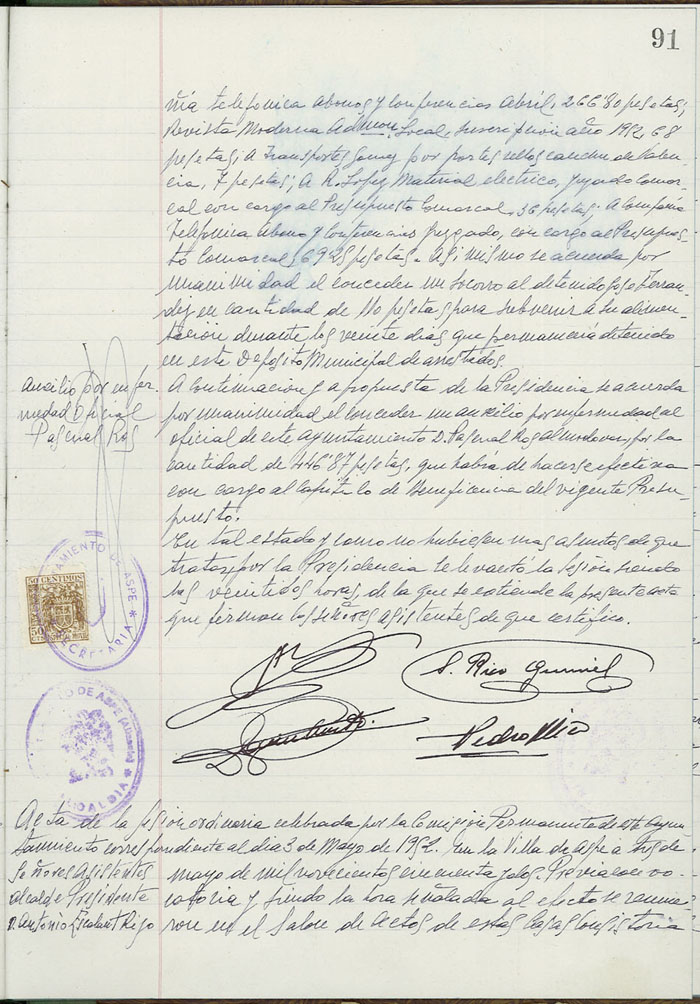 91
ñia telefonica abonos y conferencias Abril, 266'80 pesetas;
Revista Moderna Admon. Local, suscripcion año 1952, 68
pesetas; A Transportes Gomez por portes sellos caucho de Valen-
cia, 7 pesetas; A R. Lopez Material electrico, Juzgado Comar-
cal con cargo al Presupuesto Comarcal, 36 pesetas; A Compañia
Telefonica Abono y conferencias juzgado, con cargo al Presupues-
to Comarcal, 69'25 pesetas. Asi mismo se acuerda por
unanimidad el conceder un socorro al detenido Jose Fernan-
dez en cantidad de 110 pesetas para subvenir a su alimen-
tacion durante los veinte dias que permanecerá detenido
en este Deposito Municipal de arrestados.
Auxilio por enfer-
medad Oficial
Pascual Ros
A continuacion y a propuesta de la Presidencia se acuerda
por unanimidad el conceder un auxilio por enfermedad al
oficial de este ayuntamiento D. Pascual Ros Almodovar, por la
cantidad de 446'87 pesetas, que habrá de hacerse efectiva
con cargo al Capitulo de Beneficencia del vigente Presu-
puesto.
En tal estado y como no hubiesen mas asuntos de que
tratar, por la Presidencia se levantó la sesion siendo
las veintidos horas, de la que se extiende la presente acta
que firman los señores asistentes de que certifico.
AYUNTAMIENTO DE ASPE
SECRETARIA
50 CENTIMOS
S. Rico
Pedro Mico
ALCALDIA
Acta de la sesion ordinaria celebrada por la Comision Permanente de este Ayun-
tamiento correspondiente al dia 3 de Mayo de 1952. En la Villa de Aspe a tres de
Señores Asistentes
Alcalde Presidente
D. Antonio Escalant Rigo
mayo de mil novecientos cincuenta y dos. Previa convo-
catoria y siendo la hora señalada al efecto se reunie-
ron en el Salon de Actos de estas Casas Consistoria